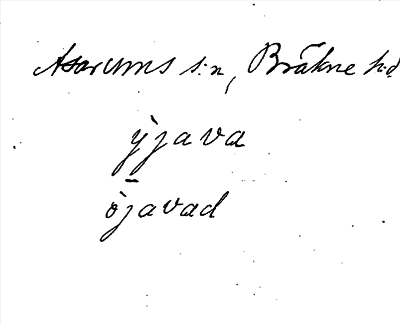 Asarums s:n, Bräkne h:d
ẏjava
ö̀javad